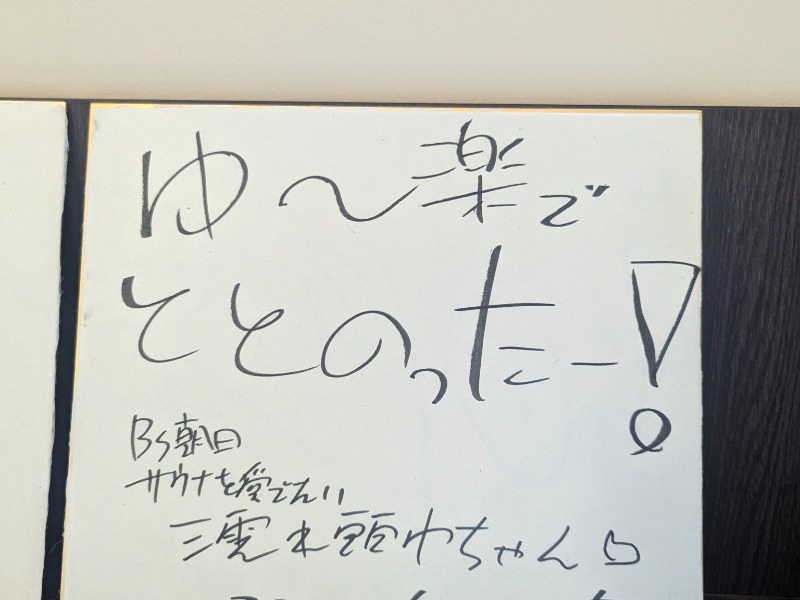 ゆ〜楽で
ととのったー!
BS朝日
サウナを愛でたい
ちゃん